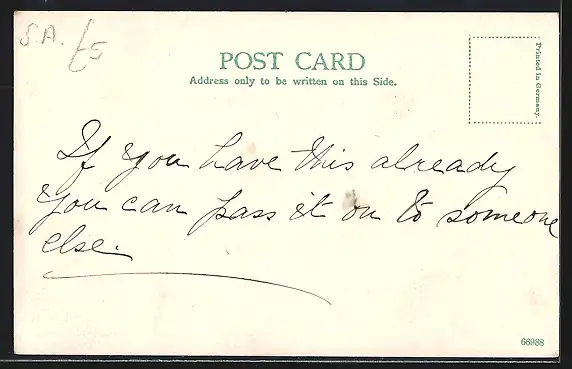 S.A. £5
POST CARD
Address only to be written on this Side.
Printed in Germany.
If you have this already
you can pass it on to someone
else.
66988